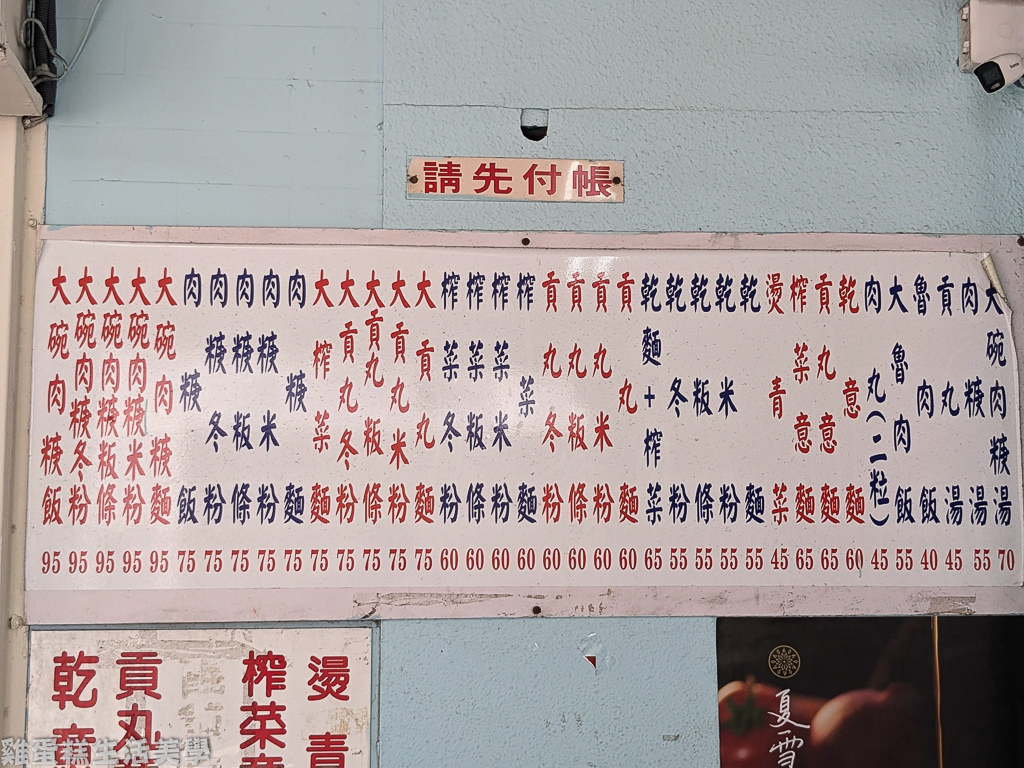 請先付帳
大碗肉糠湯 70
肉糠湯 55
貢丸湯 45
魯肉飯 40
大魯肉飯 55
肉丸(二粒) 45
乾意麵 60
貢丸意麵 65
榨菜意麵 65
燙青菜 45
乾麵 55
乾米粉 55
乾粄條 55
乾冬粉 55
乾麵+榨菜 65
貢丸麵 60
貢丸米粉 60
貢丸粄條 60
貢丸冬粉 60
榨菜麵 60
榨菜米粉 60
榨菜粄條 60
榨菜冬粉 60
大貢丸麵 75
大貢丸米粉 75
大貢丸粄條 75
大貢丸冬粉 75
大榨菜麵 75
肉糠麵 75
肉糠米粉 75
肉糠粄條 75
肉糠冬粉 75
肉糠飯 75
大碗肉糠麵 95
大碗肉糠米粉 95
大碗肉糠粄條 95
大碗肉糠冬粉 95
大碗肉糠飯 95
燙青
榨菜意
貢丸
乾意
夏雪
雞蛋糕生活美學